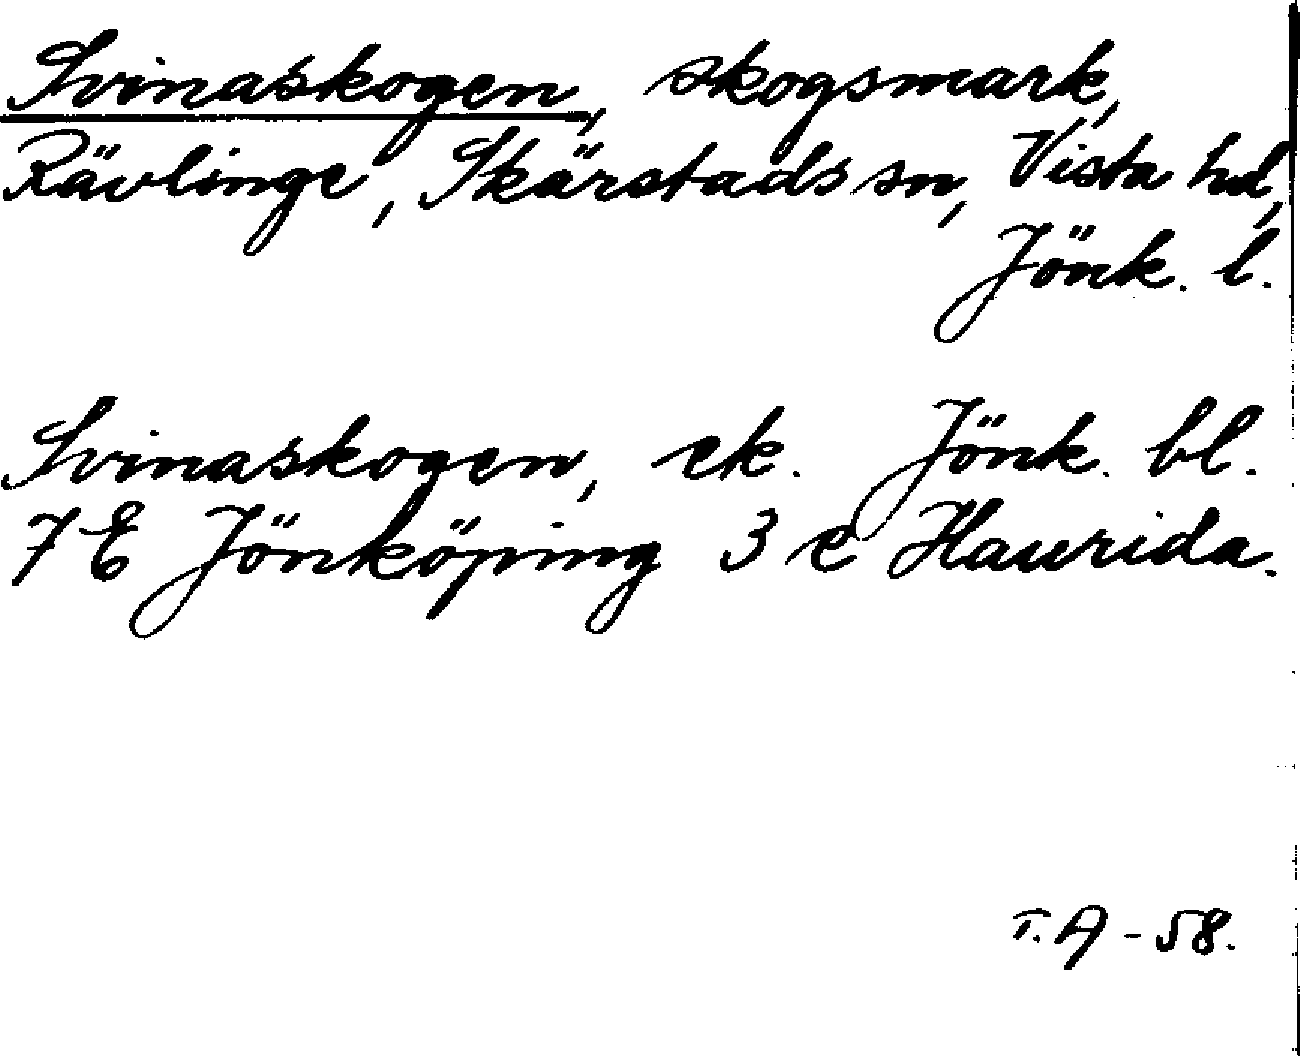 Svinaskogen, skogsmark,
Rävlinge, Skärstads sn, Vista hd,
Jönk. l.
Svinaskogen, ek. Jönk. bl.
7 E Jönköping 3 e Haurida.
T. A - 58.